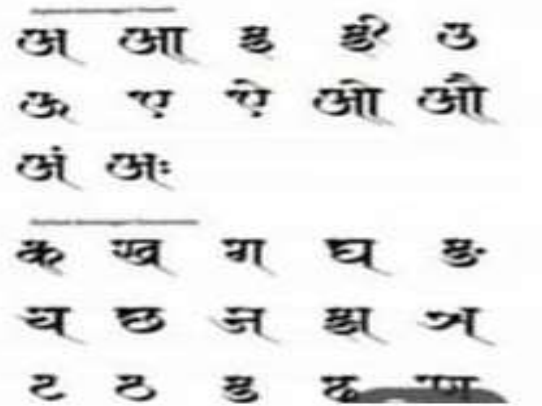 अ आ इ ई उ
ऊ ए ऐ ओ औ
अं अः
क ख ग घ ङ
च छ ज झ ञ
ट ठ ड ढ ण